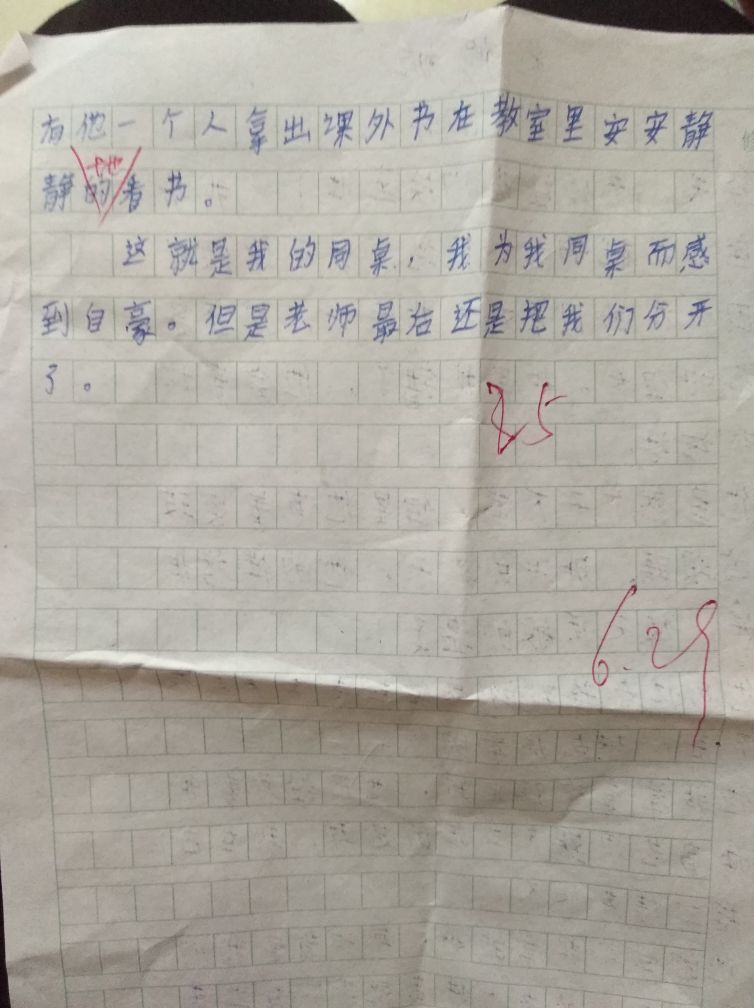 有他一个人拿出课外书在教室里安安静
地
静的看书。
这就是我的同桌，我为我同桌而感
到自豪。但是老师最后还是把我们分开
了。
25
6.29